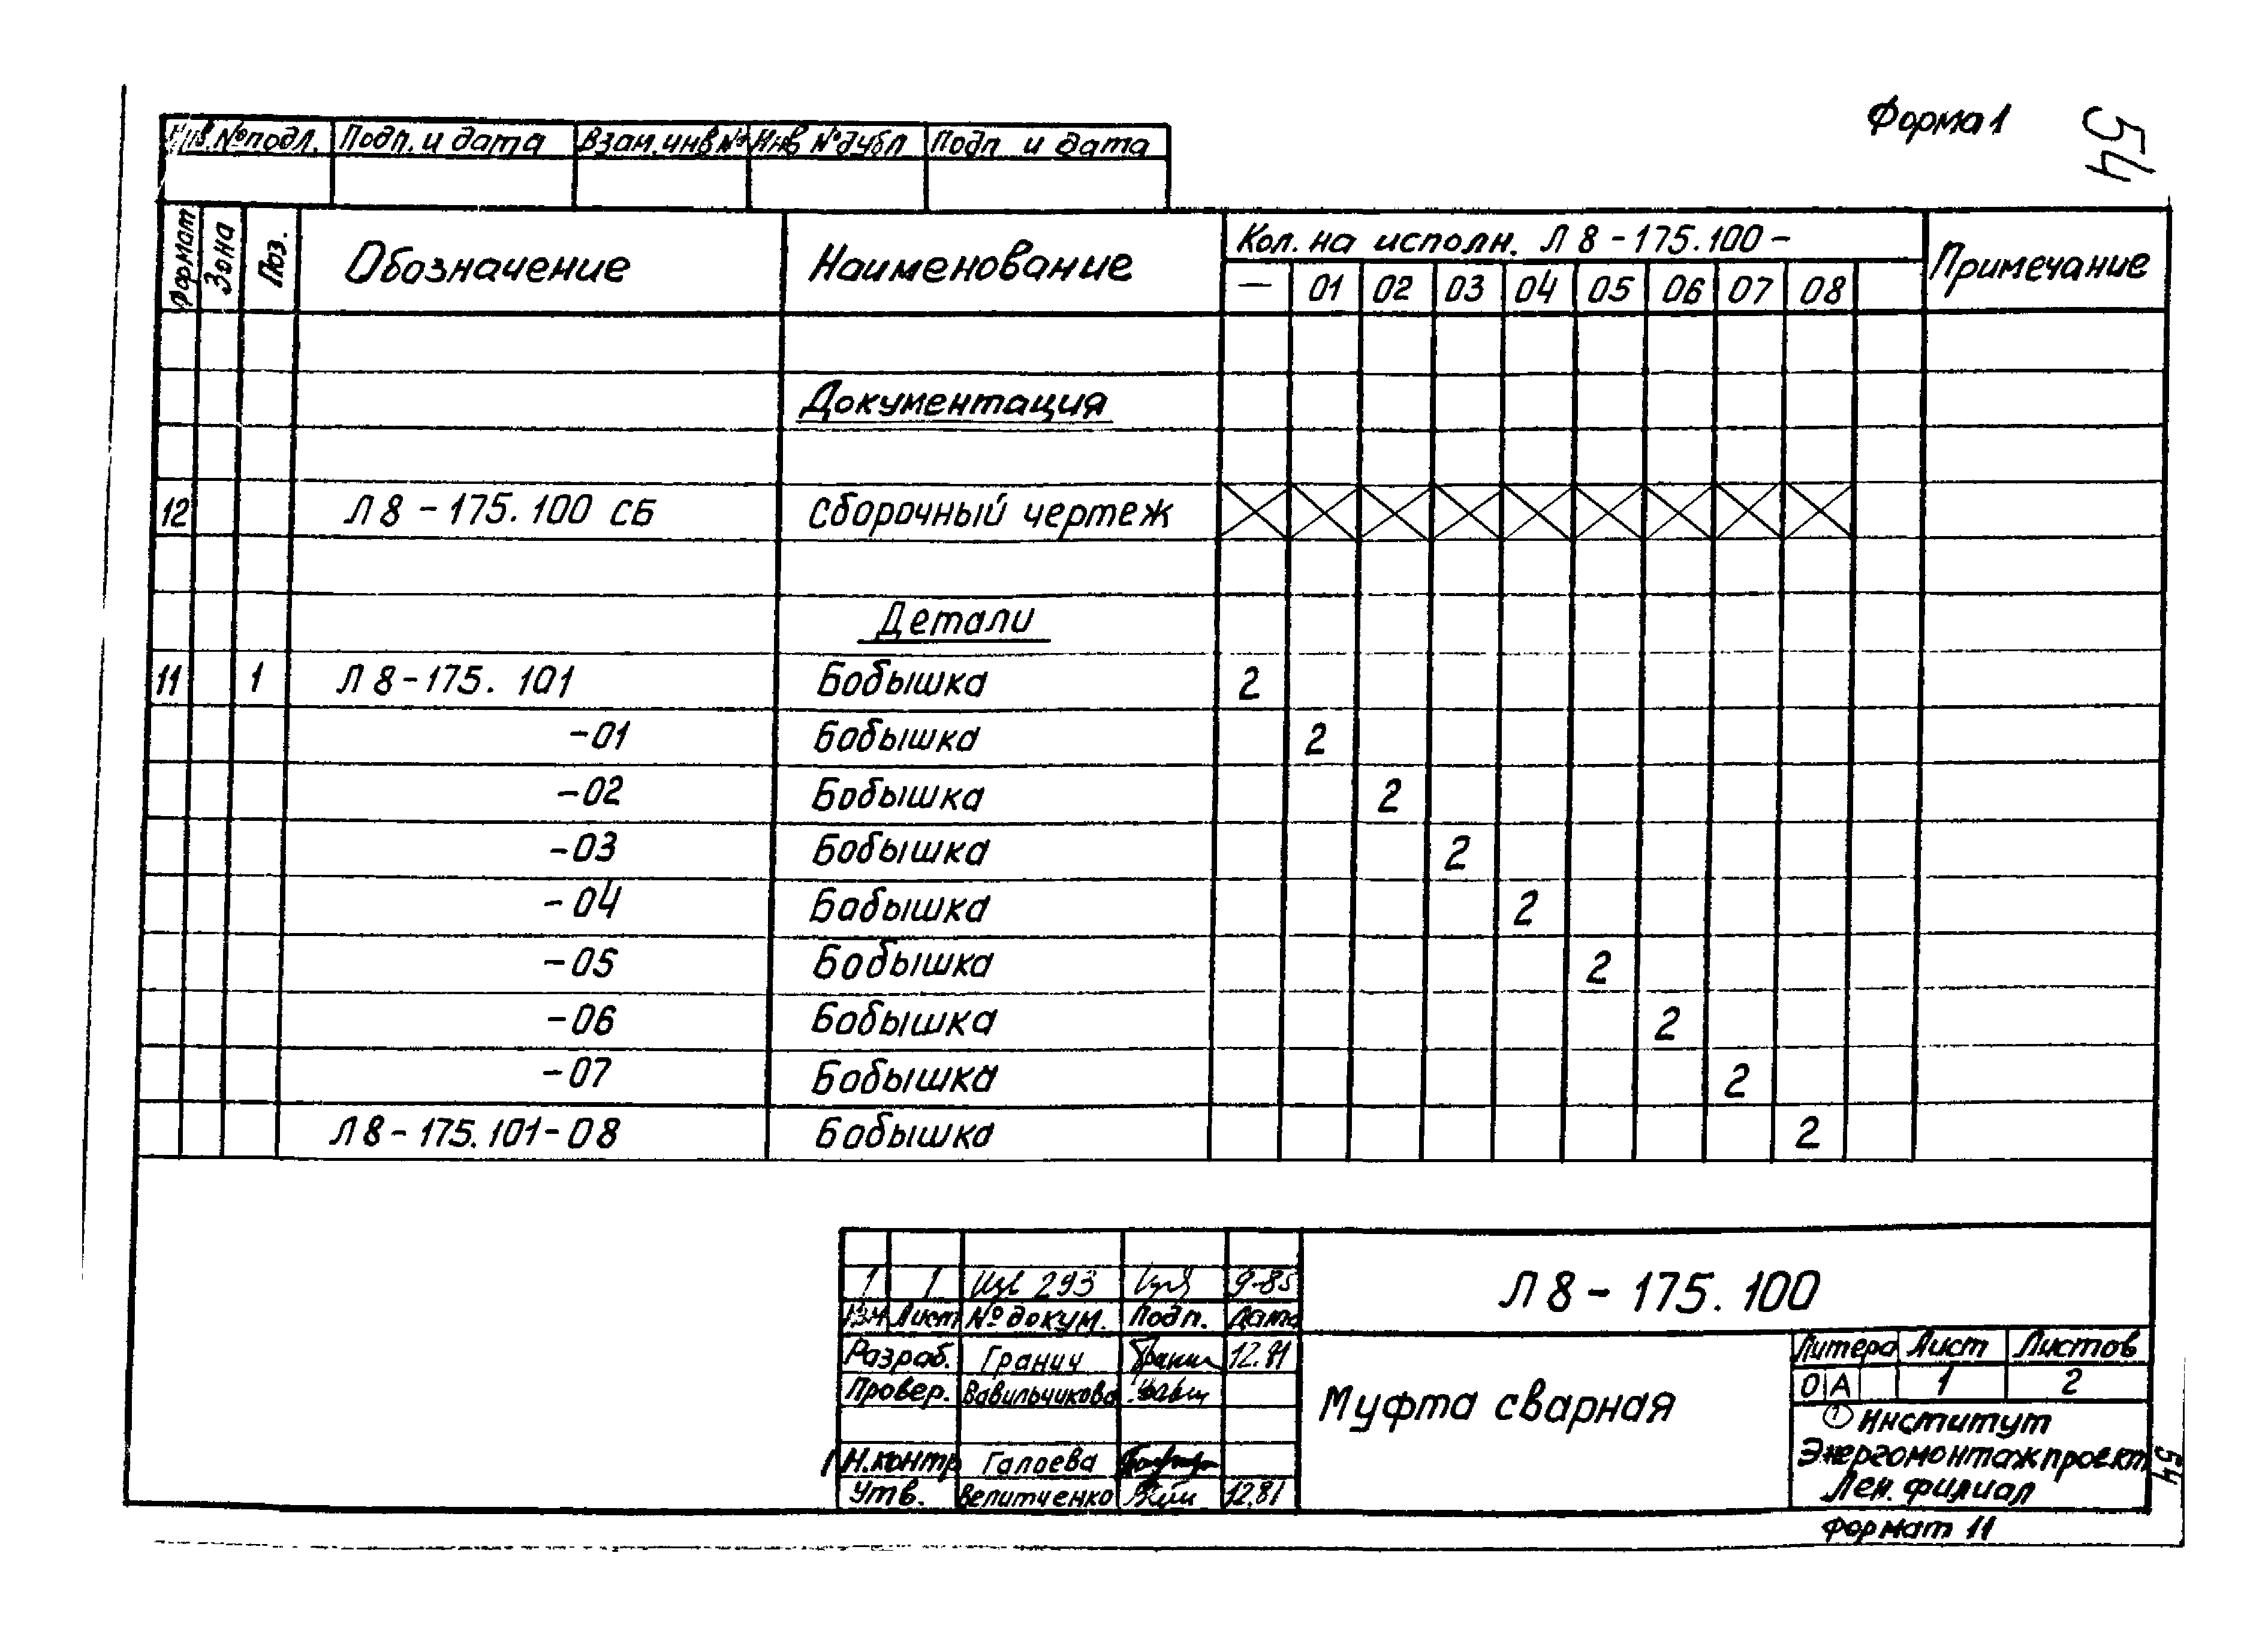 Форма 1
54
Инв.№подл. Подп. и дата Взам.инв№ Инв №дубл Подп и дата
Формат Зона Поз. Обозначение Наименование Кол. на исполн. Л 8-175.100- Примечание
— 01 02 03 04 05 06 07 08
Документация
12 Л 8-175.100 СБ Сборочный чертеж
Детали
11 1 Л 8-175. 101 Бобышка 2
-01 Бобышка 2
-02 Бобышка 2
-03 Бобышка 2
-04 Бобышка 2
-05 Бобышка 2
-06 Бобышка 2
-07 Бобышка 2
Л 8-175.101-08 Бобышка 2
1 1 Изв 293 9-85
Изм Лист №докум. Подп. Дата
Л 8-175.100
Разраб. Гранич 12.81
Провер. Вавильчикова
Н.контр Галоева
Утв. Велитченко 12.81
Муфта сварная
Литера Лист Листов
О А 1 2
1 Институт
Энергомонтажпроект
Лен. филиал
54
Формат 11